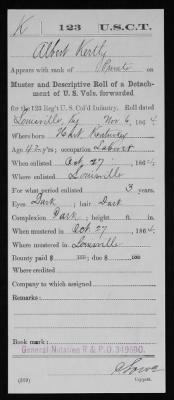 K | 123 | U.S.C.T.
Albert Kertly
Appears with rank of Private on
Muster and Descriptive Roll of a Detachment of U. S. Vols. forwarded
for the 123 Reg't U. S. Col'd Infantry. Roll dated
Louisville, Ky Nov 6, 1864.
Where born Kentucky
Age 42 y'rs; occupation Laborer
When enlisted Oct. 27, 1864.
Where enlisted Louisville
For what period enlisted 3 years.
Eyes Dark; hair Dark
Complexion Dark; height ft. in.
When mustered in Oct. 27, 1864.
Where mustered in Louisville
Bounty paid $ 100; due $ 100
Where credited
Company to which assigned
Remarks:
Book mark:
General Notation R & P.O.
(339) Copyist.